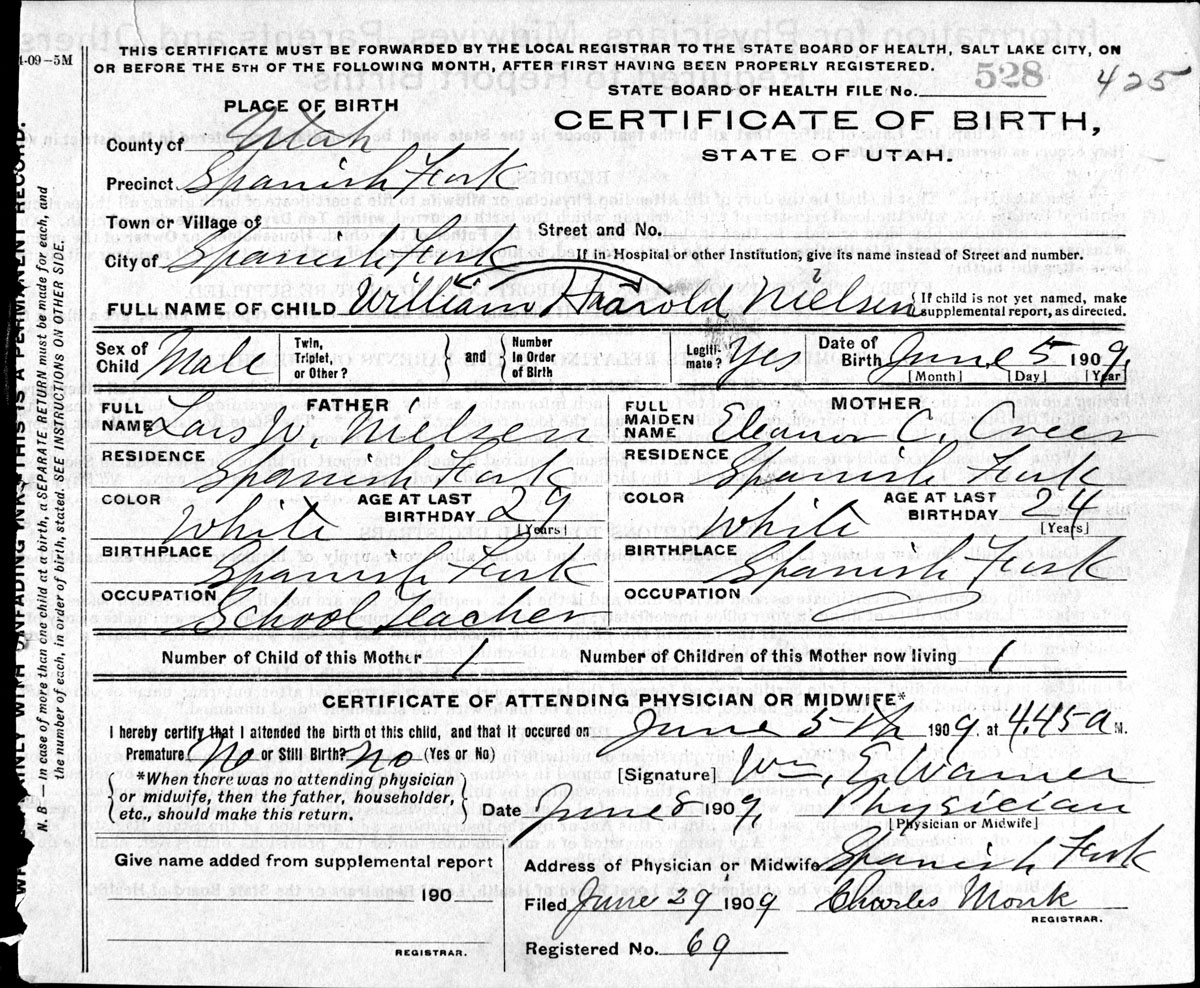 1-09-5M
THIS CERTIFICATE MUST BE FORWARDED BY THE LOCAL REGISTRAR TO THE STATE BOARD OF HEALTH, SALT LAKE CITY, ON
OR BEFORE THE 5TH OF THE FOLLOWING MONTH, AFTER FIRST HAVING BEEN PROPERLY REGISTERED.
STATE BOARD OF HEALTH FILE No. 528 425
PLACE OF BIRTH
CERTIFICATE OF BIRTH,
STATE OF UTAH.
County of Utah
Precinct Spanish Fork
Town or Village of
Street and No.
City of Spanish Fork
If in Hospital or other Institution, give its name instead of Street and number.
FULL NAME OF CHILD William Harold Nielsen
{ If child is not yet named, make
supplemental report, as directed.
Sex of Child Male
Twin, Triplet, or Other? } and { Number in Order of Birth
Legiti-mate? Yes
Date of Birth June 5 1909
[Month] [Day] [Year]
FATHER
FULL NAME Lars W. Nielsen
RESIDENCE Spanish Fork
COLOR White
AGE AT LAST BIRTHDAY 29
[Years]
BIRTHPLACE Spanish Fork
OCCUPATION School Teacher
MOTHER
FULL MAIDEN NAME Eleanor C. Creer
RESIDENCE Spanish Fork
COLOR White
AGE AT LAST BIRTHDAY 24
[Years]
BIRTHPLACE Spanish Fork
OCCUPATION
Number of Child of this Mother 1
Number of Children of this Mother now living 1
CERTIFICATE OF ATTENDING PHYSICIAN OR MIDWIFE*
I hereby certify that I attended the birth of this child, and that it occured on June 5th 1909. at 4.45 a M.
Premature No or Still Birth? No (Yes or No)
*When there was no attending physician
or midwife, then the father, householder,
etc., should make this return.
[Signature] Wm. E. Warner
Date June 8 1909, Physician
[Physician or Midwife]
Give name added from supplemental report
190
REGISTRAR.
Address of Physician or Midwife Spanish Fork
Filed June 29 1909 Charles Monk
REGISTRAR.
Registered No. 69
UNFADING INK—THIS IS A PERMANENT RECORD.
N. B.—In case of more than one child at a birth, a SEPARATE RETURN must be made for each, and
the number of each, in order of birth, stated. SEE INSTRUCTIONS ON OTHER SIDE.